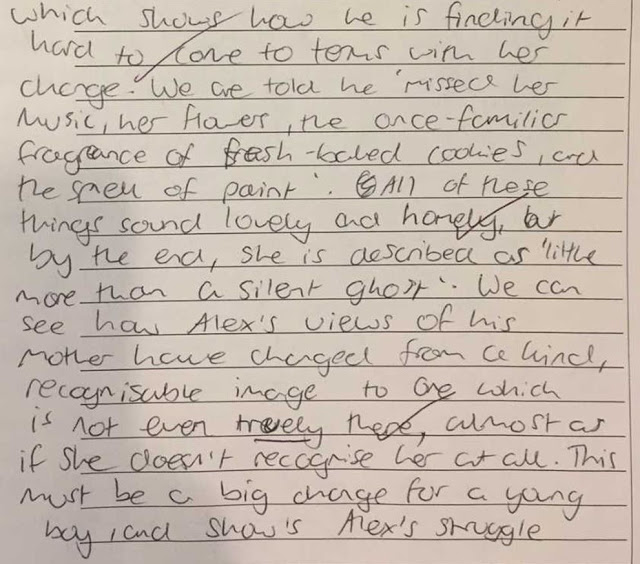 which shows how he is finding it
hard to come to terms with her
change. We are told he 'missed her
music, her flowers, the once-familiar
fragrance of fresh-baked cookies, and
the smell of paint'. All of these
things sound lovely and homely, but
by the end, she is described as 'little
more than a silent ghost'. We can
see how Alex's views of his
mother have changed from a kind,
recognisable image to one which
is not even truely there, almost as
if she doesn't recognise her at all. This
must be a big change for a young
boy, and show's Alex's struggle